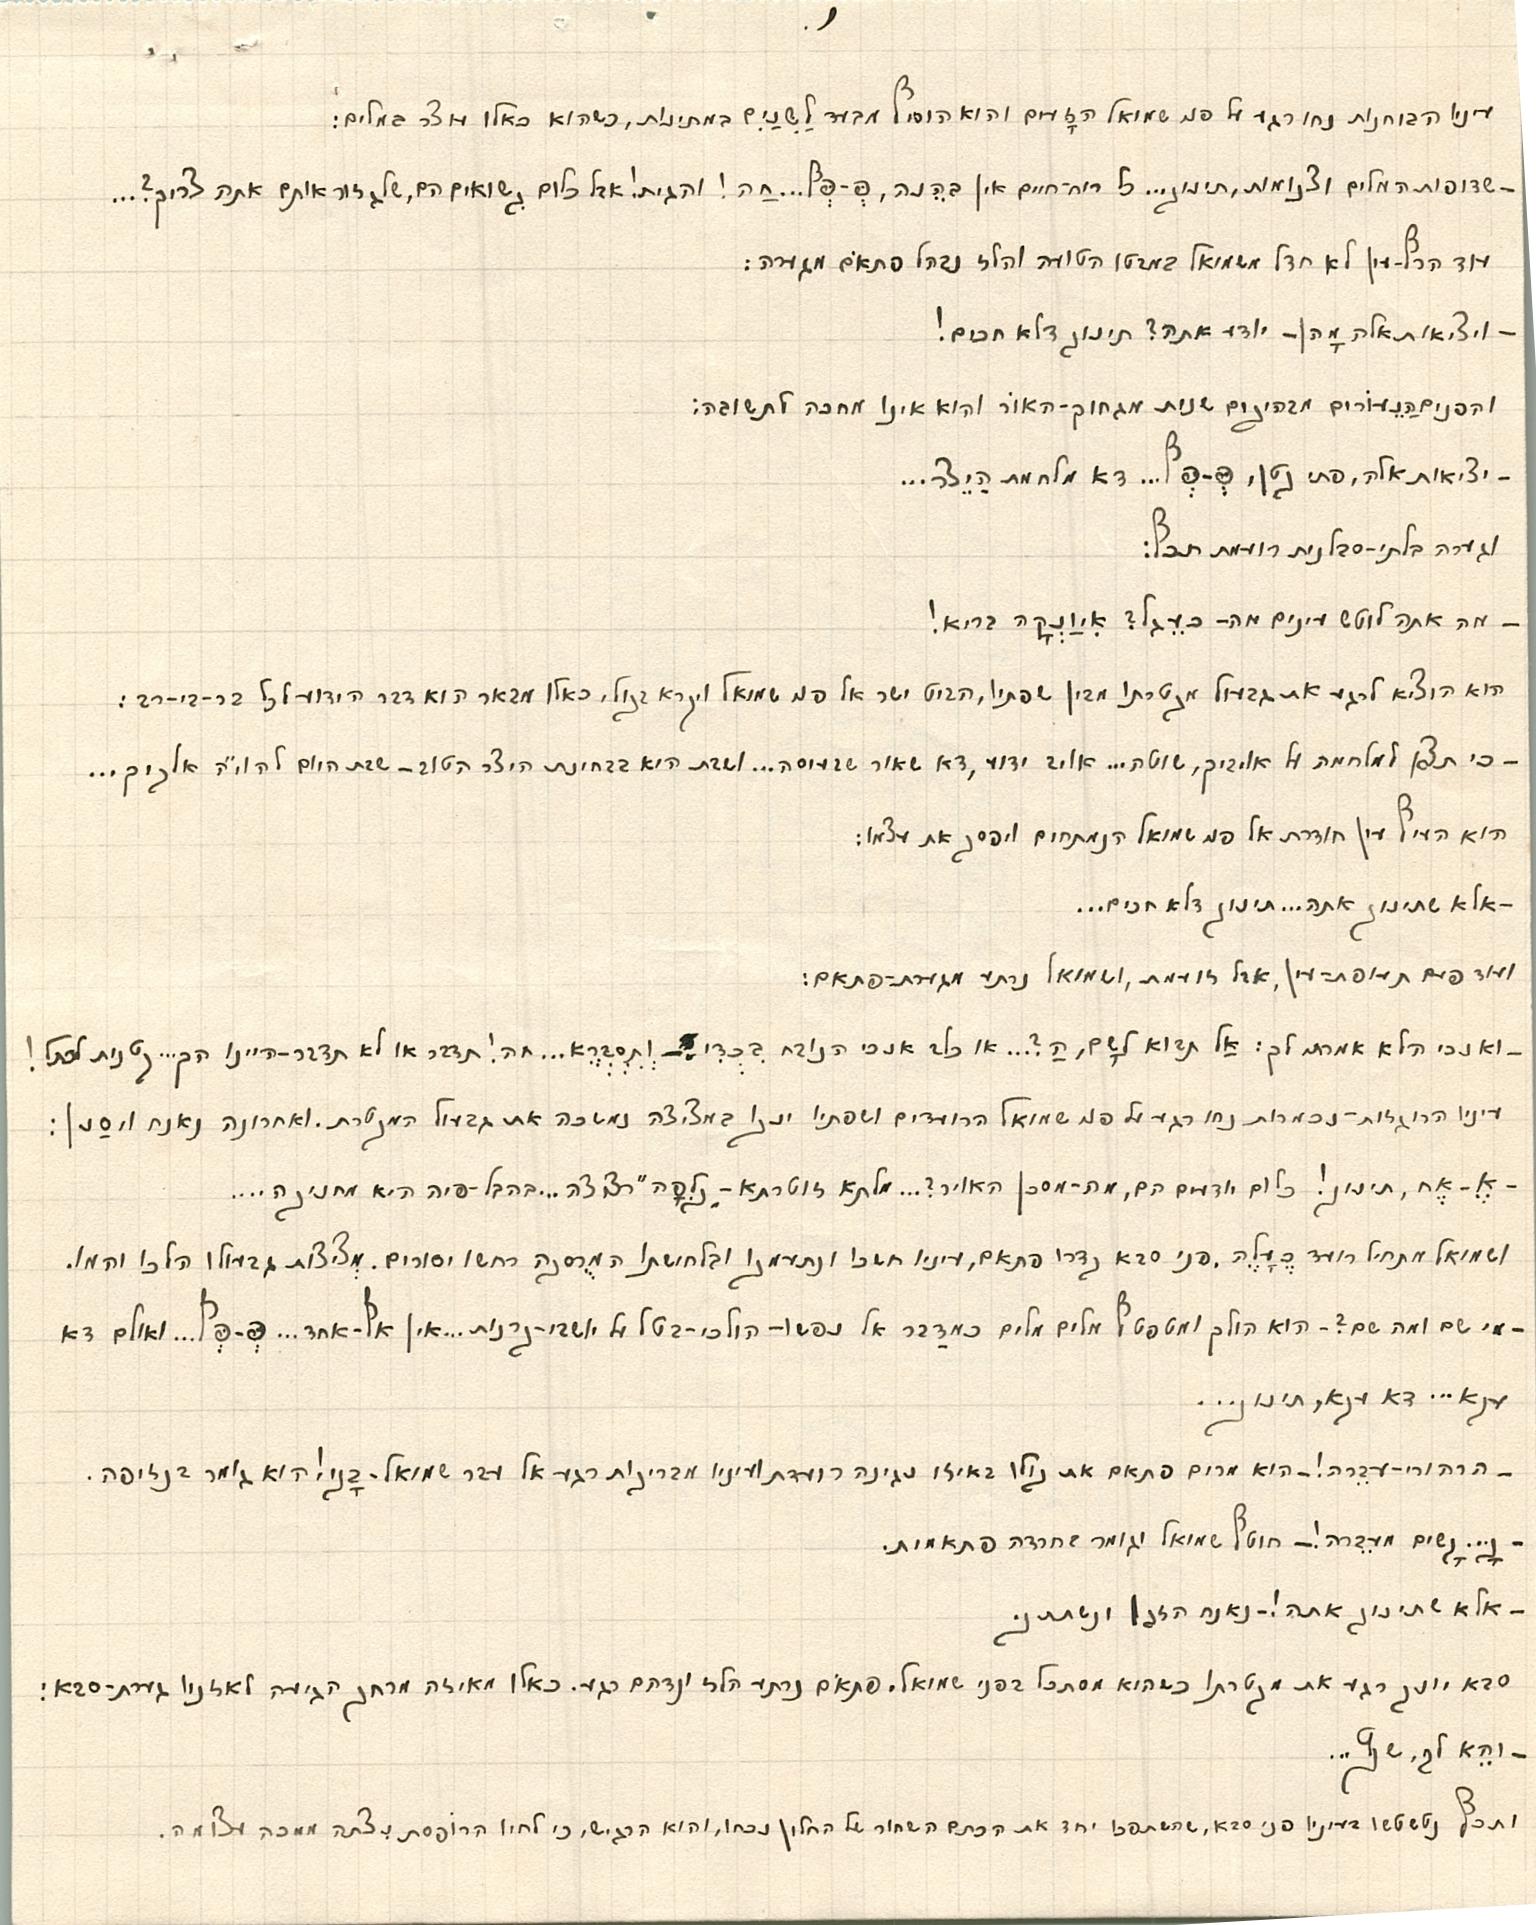 ו.
עיניו הבוחנות נחו רגע על פני שמואל הזָעים והוא הוסיף מבעד לַשִנַיִם במתינות, כשהוא כאלו עוצר במלים:
–שדופות המלים וצנומות, תינוק... כל רוח-חיים אין בהֵנה, פְּ-פְּף...חַה! והגית! אבל כלום נְשואים הם, שלגזור אותם אתה צריך?...
עוד הרף-עין לא חדל משמואל במבטו הטועה והלז נבהל פתאֹם מגערה:
– ויציאות אלה מָהן – יודע אתה? תינוק דלא חכים!
והפנים הַנֵעוֹרים מבהיקים שנות מגחוק-האוֹר והוא אינו מחכה לתשובה:
– יציאות אלה, פתי קטן, פְּ-פְּף... דא מלחמת הַיֵצר...
וגערה בלתי-סבלנית רועמת תכף:
– מה אתה לוטש עינים מה– כעֵגל? אִיוַנְקָה בריא!
הוא הוציא לרגע את גבעול מקטרתו מבין שפתיו, הביט ישר אל פני שמואל ויקרא בקול, כאלו מבאר הוא דבר הידוע לכל בר-בי-רב:
– כי תצא למלחמה על אויביך, שוטה... אויב ידוע, דא שאור שבעיסה... ושבת היא בבחינת היצר הטוב– שבת היום להוי"ה אלקיך...
הוא העיף עין חודרת אל פני שמואל הנמתחים ויפסק את עצמו:
–אלא שתינוק אתה... תינוק דלא חכים...
ועוד פעם תעופת-עין, אבל זועמת, ושמואל נרתע מגערת-פתאם:
–ואנכי הלא אמרתי לך: אַל תבוא לשָם, הַ?... או כלב אנכי הנובח בִּכְדִי – וְתִסְבְּרֵא... חה! תדבר או לא תדבר–היינו הך... קטנות לכתל!
עיניו הרוגזות-נכמרות נחו רגע על פני שמואל הרועדים ושפתיו ינקו במציצה נמשכה את גבעול המקטרת. ואחרונה נאנח ויסַנן:
– אֶ-אֶח, תינוק! כלום יודעים הם, מה-מסכן האויר?... מלתא זוטרתא – קלִפָּה רצוצה... בהבל-פיה היא מחניקה....
ושמואל מתחיל רועד כֶּעָלֶה. פני סבא קדרו פתאם, עיניו חשכו ונתעמקו ובלחישתו המרֻסנה רחשו יסורים. מְציצות גבעולו הלכו והמו.
– מי שם ומה שם? – הוא הולך ומטפטף מלים מלים כמדַבר אל נפשו– הולכי-בטל על יושבי-קרנות... אין אלף-אחד... פְּ-פְּף... ואולם דא
עקא... דא עקא, תינוק...
– הרהורי-עבֵרה! – הוא מרים פתאם את קולו באיזו נגינה רועדת ועיניו מבריקות רגע אל עבר שמואל – בָנוּ! הוא גומר בנזיפה.
– קָ... קָשים מעבֵרה! – חוטף שמואל וגומר בחרדה פתאמית.
– אלא שתינוק אתה! – נאנח הזקן ונשתתק.
סבא יונק רגע את מקטרתו כשהוא מסתכל בפני שמואל. פתאֹם נרתע הלז ונדהם רגע. כאלו מאיזה מרחק הגיעה לאזניו גערת-סבא:
– והֵא לך, שקץ...
ותכף נטשטשו בעיניו פני סבא, שהשתפכו יחד את הכתם השחור של החלון נכחו, והוא הרגיש, כי לחיו הרוֹפסת נצתה ממכה עצומה.